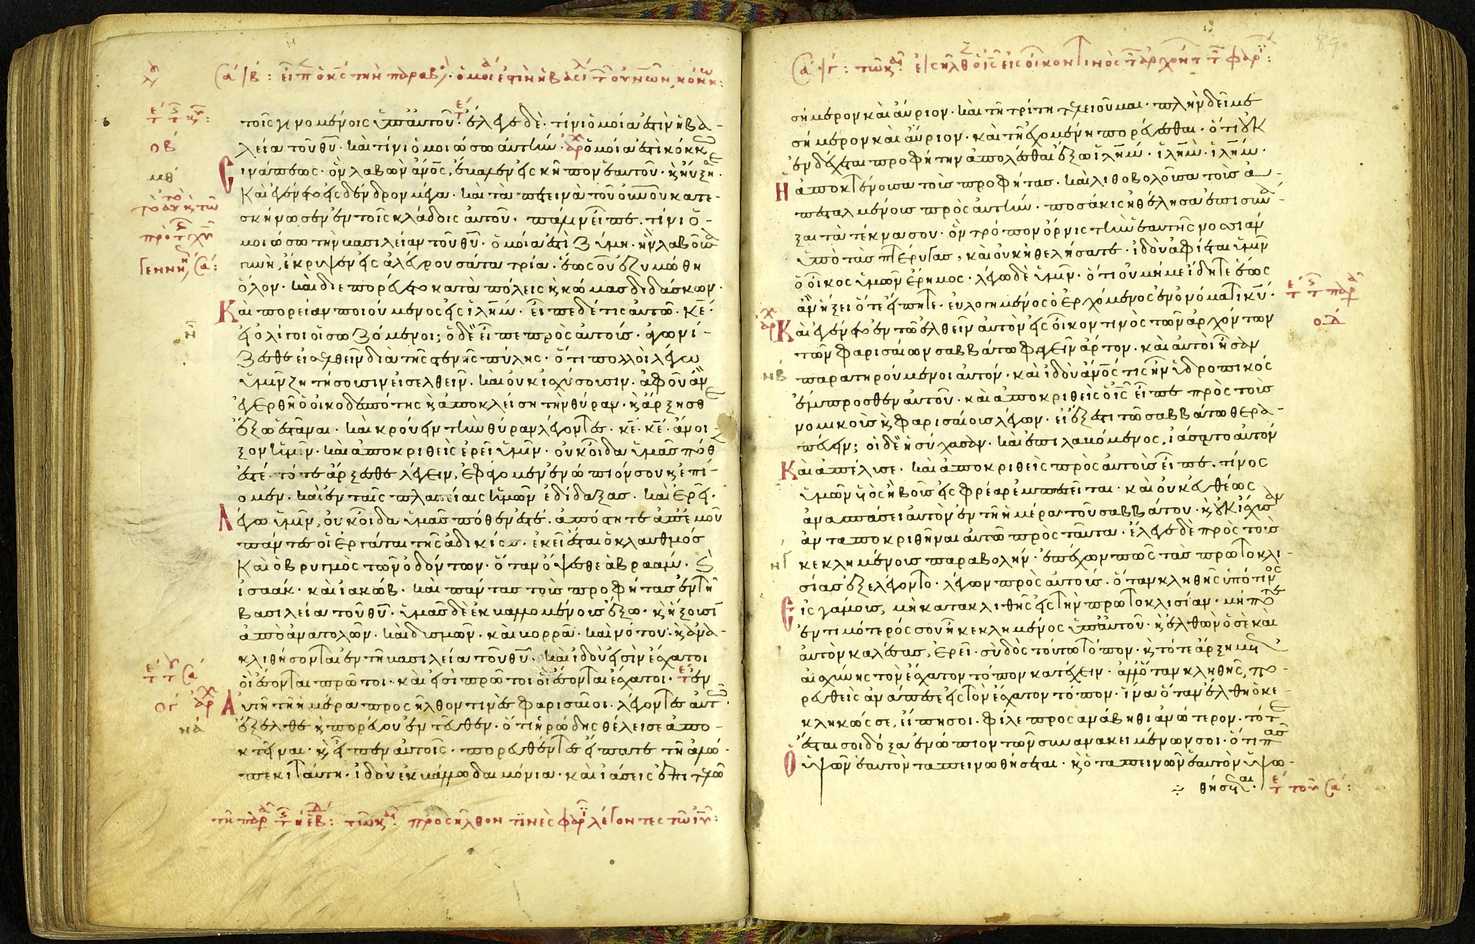 τοῖς γινομένοις ὑπ αὐτοῦ· ἔλεγε δὲ· τίνι ὁμοία ἐστὶν ἡ βα-
λεία τοῦ θῦ· καὶ τίνι ὁμοιώσω αὐτήν· ὁμοία ἐστὶ κόκκω
σινάπεως· ὃν λαβὼν ἄνος, ἔβαλεν εἰς κῆπον ἑαυτοῦ· κ ηὔξησε·
Καὶ ἐγένετο εἰς δένδρον μέγα· καὶ τὰ πετεινὰ τοῦ οὐνοῦ κατε-
σκήνωσεν ἐν τοῖς κλάδοις αὐτοῦ· πάλιν εἶπε· τίνι ὁ-
μοιώσω τὴν βασιλείαν τοῦ θῦ· ὁμοία ἐστὶ ζύμη· ἣν λαβοῦσα
γυνὴ, ἐνέκρυψεν εἰς ἀλεύρου σάτα τρία· ἕως οὗ ἐζυμώθη
ὅλον· καὶ διεπορεύετο κατὰ πόλεις κ κώμας διδάσκων·
Καὶ πορείαν ποιούμενος εἰς ἱλῆμ· εἶπε δέ τις αὐτῶ· κε·
εἰ ὀλίγοι οἱ σωζόμενοι; ὁ δὲ εἶπε πρὸς αὐτούς· ἀγωνί-
ζεσθε εἰσελθεῖν διὰ τῆς στενῆς πύλης· ὅτι πολλοὶ λέγω
ὑμῖν ζητήσουσιν εἰσελθεῖν· καὶ οὐκ ἰσχύσουσιν· ἀφ οὗ ἂν
ἐγερθῆ ὁ οἰκοδεσπότης κ ἀποκλείση τὴν θύραν· κ ἄρξησθε
ἔξω ἑστάναι· καὶ κρούειν τὴν θύραν λέγοντες· κε· κε· ἄνοι-
ξον ἡμῖν· καὶ ἀποκριθεὶς ἐρεῖ ὑμῖν· οὐκ οἶδα ὑμᾶς πόθεν
ἐστέ· τότε ἄρξεσθε λέγειν, ἐφάγομεν ἐνώπιόν σου κ ἐπί-
ομεν· καὶ ἐν ταῖς πλατείαις ἡμῶν ἐδίδαξας· καὶ ἐρεῖ·
Λέγω ὑμῖν, οὐκ οἶδα ὑμᾶς πόθεν ἐστέ· ἀπόστητε ἀπ ἐμοῦ
πάντες οἱ ἐργάται τῆς ἀδικίας· ἐκεῖ ἔσται ὁ κλαυθμὸς
Καὶ ὁ βρυγμὸς τῶν ὀδόντων· ὅταν ὄψεσθε ἀβραὰμ· κ
ἰσαὰκ· καὶ ἰακώβ· καὶ πάντας τοὺς προφήτας ἐν τῆ
βασιλεία τοῦ θῦ· ὑμᾶς δὲ ἐκβαλλομένους ἔξω· κ ἥξουσιν
ἀπὸ ἀνατολῶν· καὶ δυσμῶν· καὶ βορρᾶ· καὶ νότου· κ ἀνα-
κλιθήσονται ἐν τῆ βασιλεία τοῦ θῦ· καὶ ἰδοὺ εἰσὶν ἔσχατοι
οἳ ἔσονται πρῶτοι· καὶ εἰσὶ πρῶτοι οἳ ἔσονται ἔσχατοι· ἐν
Αὐτῆ τῆ ἡμέρα προσῆλθόν τινες φαρισαῖοι· λέγοντες αὐτῶ·
ἔξελθε κ πορεύου ἐντεῦθεν· ὅτι ἡρώδης θέλει σε ἀπο-
κτεῖναι· κ εἶπεν αὐτοῖς· πορευθέντες εἴπατε τῆ ἀλώ-
πεκι ταύτη· ἰδοὺ ἐκβάλλω δαιμόνια· καὶ ἰάσεις ἐπιτελῶ
σήμερον καὶ αὔριον· καὶ τῆ τρίτη τελειοῦμαι· πλὴν δεῖ με
σήμερον καὶ αὔριον· καὶ τῆ ἐχομένη πορεύεσθαι· ὅτι οὐκ
ἐνδέχεται προφήτην ἀπολέσθαι ἔξω ἱλῆμ· ἱλῆμ· ἱλῆμ·
Ἡ ἀποκτένουσα τοὺς προφήτας· καὶ λιθοβολοῦσα τοὺς ἀ-
πεσταλμένους πρὸς αὐτήν· ποσάκις ἠθέλησα ἐπισυνά-
ξαι τὰ τέκνα σου· ὃν τρόπον ὄρνις τὴν ἑαυτῆς νοσσιὰν
ὑπὸ τὰς πτέρυγας, καὶ οὐκ ἠθελήσατε· ἰδοὺ ἀφίεται ὑμῖν
ὁ οἶκος ὑμῶν ἔρημος· λέγω δὲ ὑμῖν· ὅτι οὐ μή με ἴδητε ἕως
ἂν ἥξει ὅτε εἴπητε· εὐλογημένος ὁ ἐρχόμενος ἐν ὀνόματι κυ·
Καὶ ἐγένετο ἐν τῶ ἐλθεῖν αὐτὸν εἰς οἶκον τινὸς τῶν ἀρχόντων
τῶν φαρισαίων σαββάτω φαγεῖν ἄρτον· καὶ αὐτοὶ ἦσαν
παρατηρούμενοι αὐτόν· καὶ ἰδοὺ ἄνος τις ἦν ὑδρωπικὸς
ἔμπροσθεν αὐτοῦ· καὶ ἀποκριθεὶς ὁ ις εἶπε πρὸς τοὺς
νομικοὺς κ φαρισαίους λέγων· εἰ ἔξεστι τῶ σαββάτω θερα-
πεύειν; οἱ δὲ ἡσύχασαν· καὶ ἐπιλαβόμενος, ἰάσατο αὐτὸν
Καὶ ἀπέλυσε· καὶ ἀποκριθεὶς πρὸς αὐτοὺς εἶπε· τίνος
ὑμῶν υἱὸς ἢ βοῦς εἰς φρέαρ ἐμπεσεῖται· καὶ οὐκ εὐθέως
ἀνασπάσει αὐτὸν ἐν τῆ ἡμέρα τοῦ σαββάτου· κ οὐκ ἴσχυσαν
ἀνταποκριθῆναι αὐτῶ πρὸς ταῦτα· ἔλεγε δὲ πρὸς τοὺς
κεκλημένους παραβολήν· ἐπέχων πῶς τὰς πρωτοκλι-
σίας ἐξελέγοντο· λέγων πρὸς αὐτούς· ὅταν κληθῆς ὑπό τινος
Εἰς γάμους, μὴ κατακλιθῆς εἰς τὴν πρωτοκλισίαν· μήποτε
ἐντιμότερός σου ἦ κεκλημένος ὑπ αὐτοῦ· κ ἐλθὼν ὁ σὲ καὶ
αὐτὸν καλέσας, ἐρεῖ σοι δὸς τούτω τόπον· κ τότε ἄρξη μετ
αἰσχύνης τὸν ἔσχατον τόπον κατέχειν· ἀλλ ὅταν κληθῆς, πο-
ρευθεὶς ἀνάπεσε εἰς τὸν ἔσχατον τόπον· ἵνα ὅταν ἔλθη ὁ κε-
κληκώς σε, εἴπη σοι· φίλε προσανάβηθι ἀνώτερον· τότε
ἔσται σοι δόξα ἐνώπιον τῶν συνανακειμένων σοι· ὅτι πᾶς
Ὁ ὑψῶν ἑαυτὸν ταπεινωθήσεται· κ ὁ ταπεινῶν ἑαυτὸν ὑψω-
θήσεται·